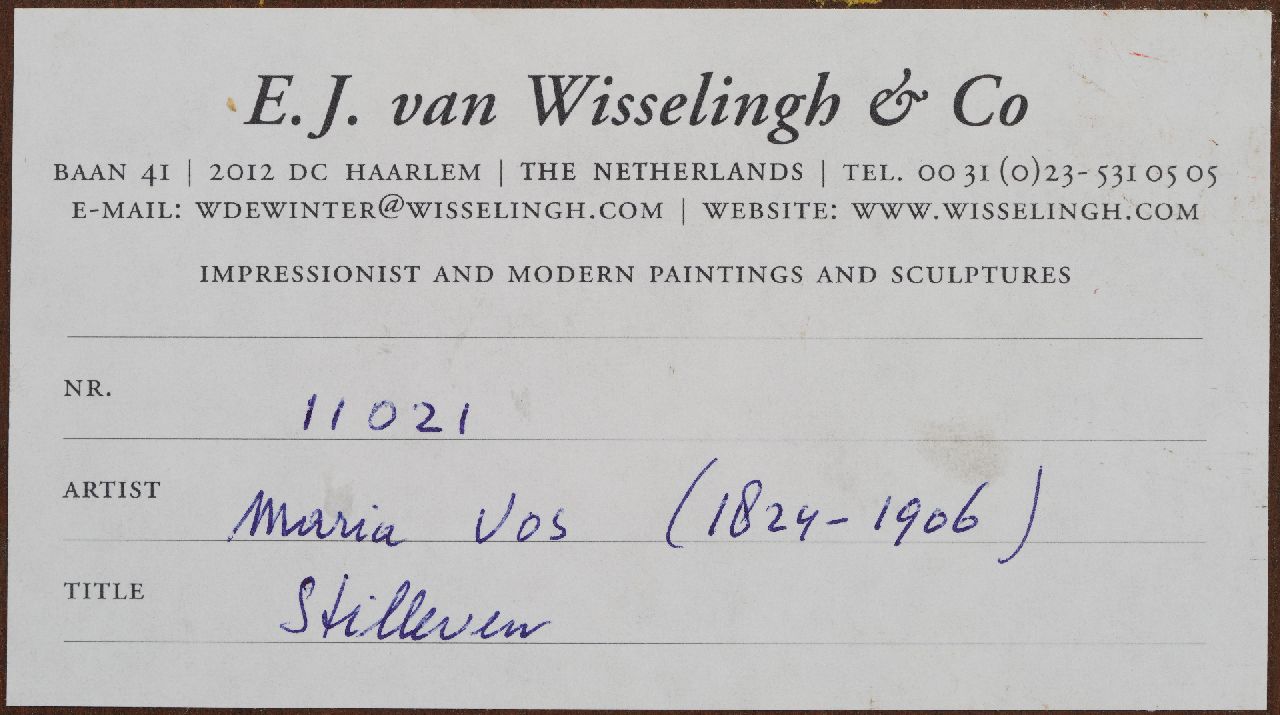 E. J. van Wisselingh & Co
BAAN 41 | 2012 DC HAARLEM | THE NETHERLANDS | TEL. 00 31 (0)23- 531 05 05
E-MAIL: WDEWINTER@WISSELINGH.COM | WEBSITE: WWW.WISSELINGH.COM
IMPRESSIONIST AND MODERN PAINTINGS AND SCULPTURES
NR. 11021
ARTIST Maria Vos (1824-1906)
TITLE Stilleven